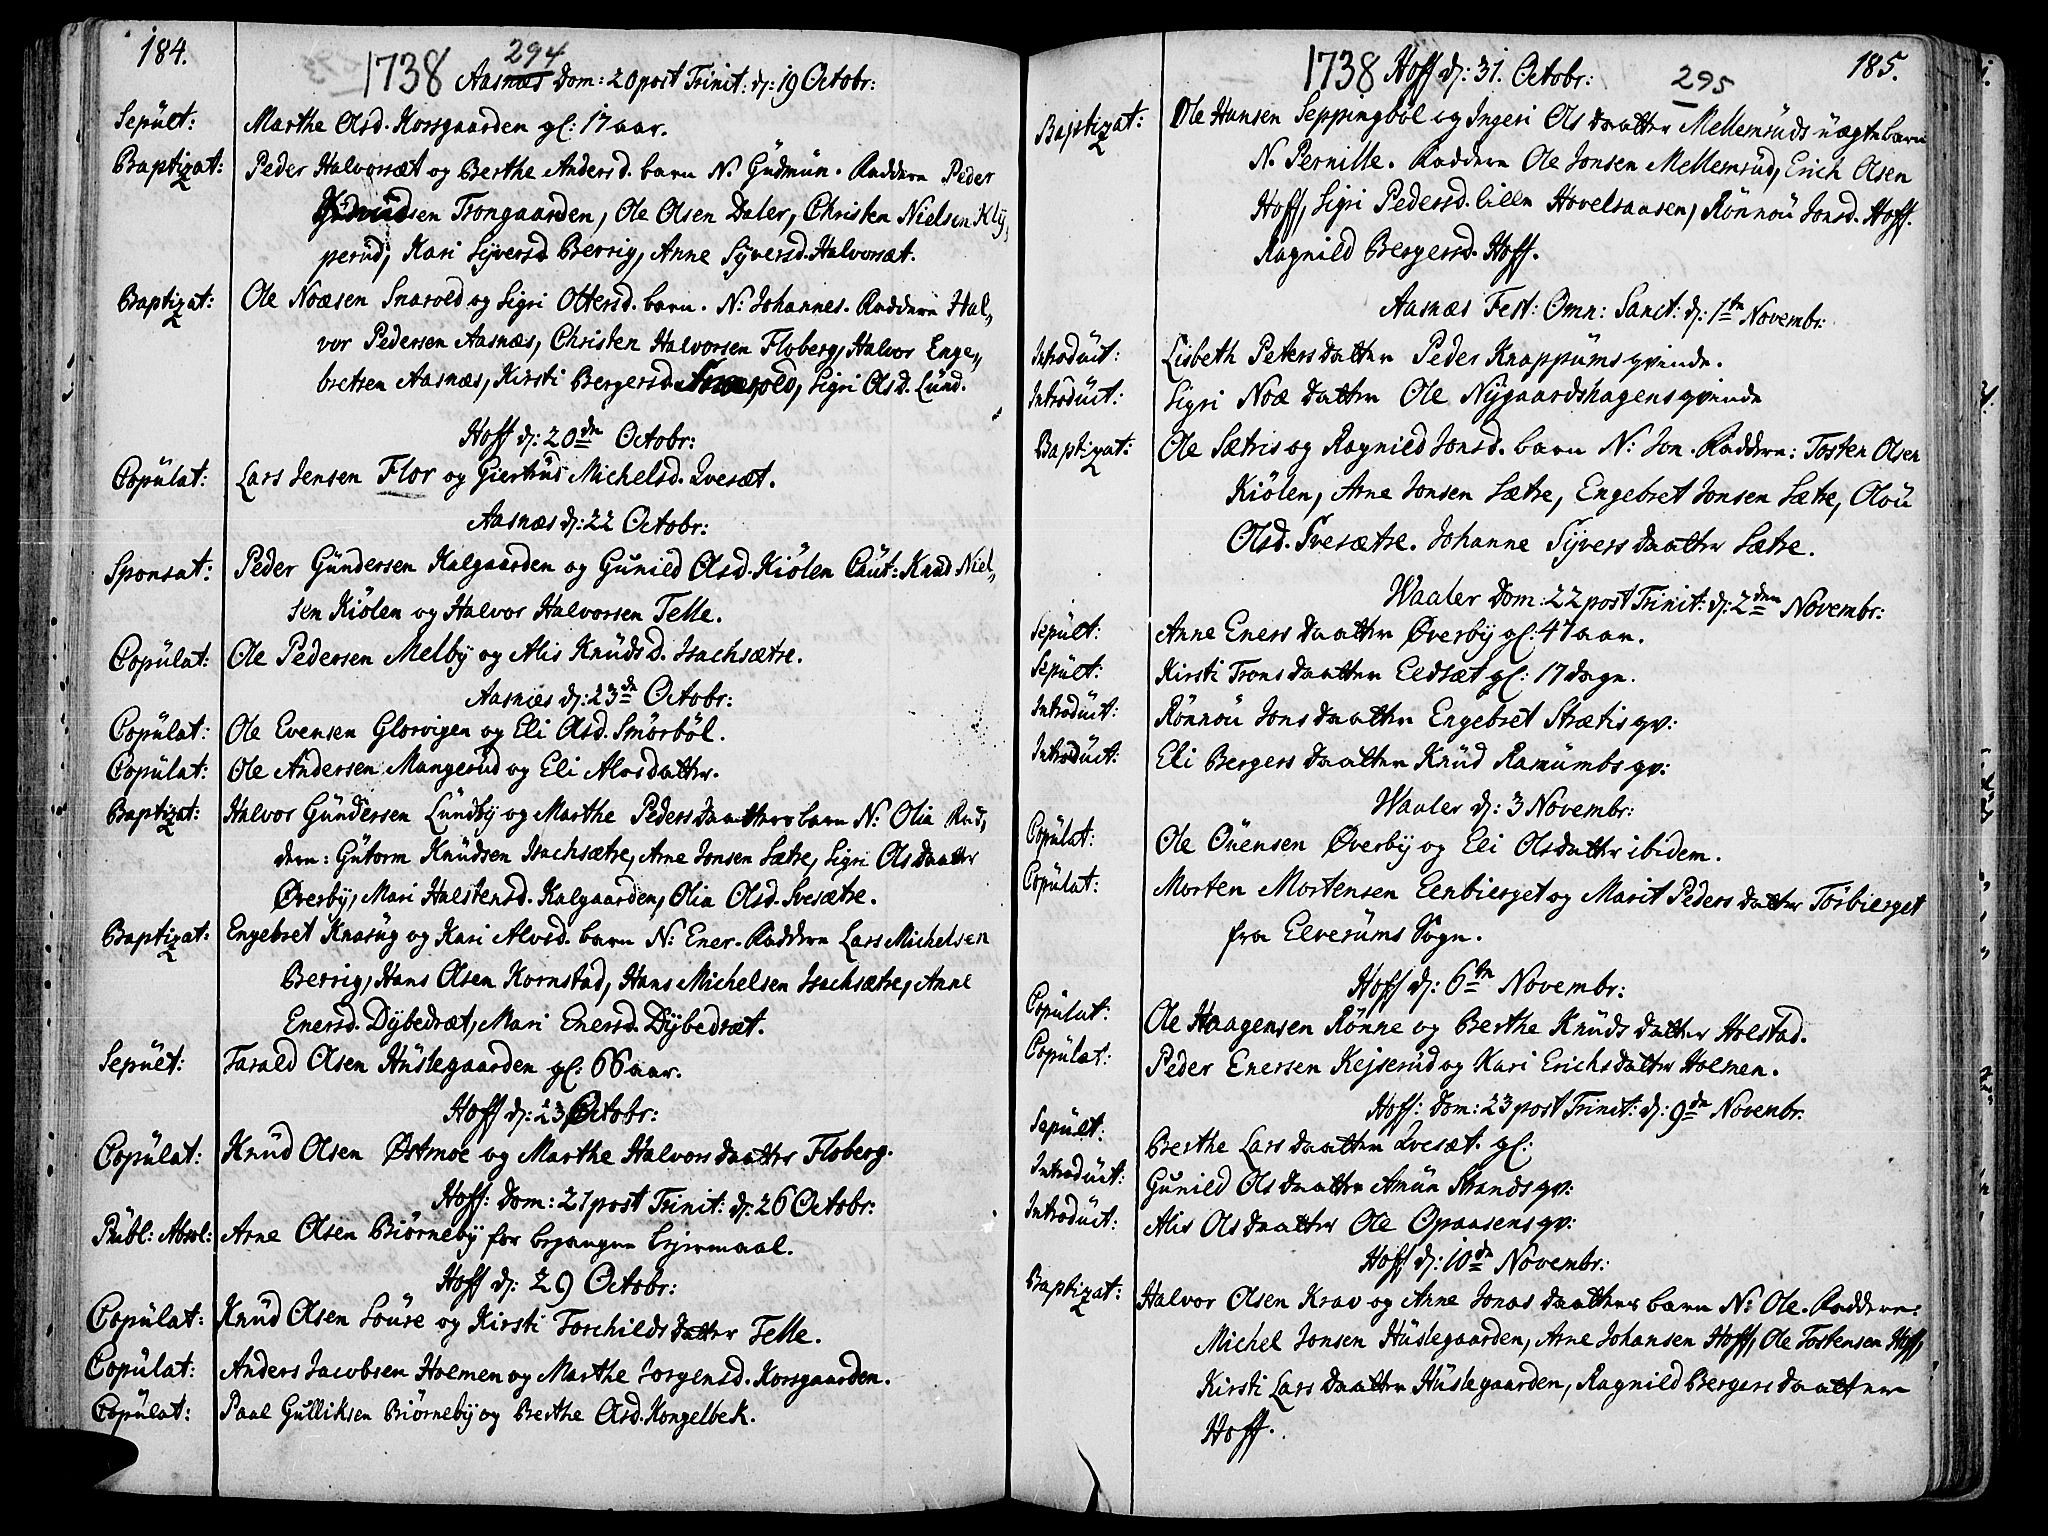 184.
294
1738 Aasnæs Dom: 20 post Trinit: d: 19 Octobr:
Sepult: Marthe Olsd. Korsgaarden gl: 17 aar.
Baptizat: Peder Halvorsæt og Berthe Andersd. barn N. Gudmün. Faddere Peder
Trongaarden, Ole Olsen Daler, Christen Nielsen Kly,
perud, Kari Syversd. Berrig, Anne Syversd. Halvorsæt.
Baptizat: Ole Noæsen Snarold og Sigri Ottersd. barn. N: Johannes. Faddere Hal,,
vor Pedersen Aasnæs, Christen Halvorsen Floberg, Halvor Enge,,
bretsen Aasnæs, Kirsti Bergersd. Snarold, Sigri Olsd. Lund.
Hoff d: 20de Octobr:
Copülat: Lars Jensen Flor og Giertrüd Michelsd. Qvesæt.
Aasnæs d: 22 Octobr:
Sponsat: Peder Gündersen Kalgaarden og Gunild Olsd. Kiölen Caut: Knud Niel,,
sen Kiölen og Halvor Halvorsen Telle.
Copülat: Ole Pedersen Melby og Alis Knüdsd. Isachsætre.
Aasnæs d: 23de Octobr:
Copülat: Ole Evensen Glorvigen og Eli Olsd. Smörböl.
Copülat: Ole Andersen Mangerüd og Eli Alvsdatter.
Baptizat: Halvor Gündersen Lündby og Marthe Pedersdaatters barn N: Olia Fad,
dere: Gütorm Knüdsen Isachsætre, Arne Jonsen Sætre, Sigri Olsdaatter
Øverby, Mari Halstensd. Kalgaarden, Olia Olsd. Svesætre.
Baptizat: Engebret Knasüg og Kari Alvsd. barn N: Ener. Faddere Lars Michelsen
Berrig, Hans Olsen Kornstad, Hans Michelsen Isachsætre, Anne
Enersd. Dybedræt, Mari Enersd. Dybedræt.
Sepült: Tarald Olsen Hüslegaarden gl: 66 aar.
Hoff d: 23 Octobr:
Copülat: Knüd Olsen Østmoe og Marthe Halvorsdaatter Floberg.
Hoff: Dom: 21 post Trinit: d: 26 Octobr:
Pübl: Absol: Arne Olsen Biörneby for begangne Leiermaal.
Hoff d: 29 Octobr:
Copülat: Knüd Olsen Soüre og Kirsti Torchildsdatter Telle.
Copülat: Anders Jacobsen Holmen og Marthe Jorgensd. Korsgaarden.
Copülat: Paal Gulliksen Biörneby og Berthe Olsd. Kongelbek.
185.
295
1738 Hoff d: 31. Octobr:
Baptizat: Ole Hansen Seppingböl og Ingeri Olsdaatter Mellemrüds uægte barn
N. Pernille. Faddere Ole Jonsen Mellemrüd, Erich Olsen
Hoff, Sigri Pedersd. lille Hovelsaasen, Rönnoü Jonsd. Hoff.
Ragnild Bergersd. Hoff.
Aasnæs Fest: Omn: Sanct: d: 1ste Novembr:
Introdüct: Lisbeth Petersdaatter Peder Knappüms qvinde.
Introdüct: Sigri Noædatter Ole Nÿgaardshagens qvinde
Baptizat: Ole Sætris og Ragnild Jonsd. barn N: Jon. Faddere: Tosten Olsen
Kiölen, Arne Jonsen Sætre, Engebret Jonsen Sætre, Oloü
Olsd. Svesætre. Johanne Sÿversdaatter Sætre.
Waaler Dom: 22 post Trinit: d: 2den Novembr:
Sepült: Anne Enersdaatter Øverbÿ gl: 47 aar.
Sepült: Kirsti Tronsdaatter Eldsæt gl: 17 dage.
Introdüct: Rönnoü Jonsdaatter Engebret Strætis qv:
Introdüct: Eli Bergersdaatter Knüd Ramümbs qv:
Waaler d: 3 Novembr:
Copülat: Ole Oüensen Øverbÿ og Eli Olsdatter ibidem.
Copülat: Morten Mortensen Eenbierget og Marit Pedersdatter Törbierget
fra Elverüms Sogn.
Hoff d: 6te Novembr:
Copülat: Ole Haagensen Rönne og Berthe Knüdsdatter Holstad.
Copülat: Peder Enersen Kejserüd og Kari Erichsdatter Holmen.
Hoff: Dom: 23 post Trinit: d: 9de Novenbr.
Sepült: Berthe Larsdaatter Qvesæt. gl:
Introdüct: Gunild Olsdaatter Amün Strands qv:
Introdüct: Alis Olsdaatter Ole Opaasens qv:
Hoff d: 10de Novembr:
Baptizat: Halvor Olsen Krav og Anne Jonasdaatters barn N: Ole. Faddere:
Michel Jonsen Hüslegaarden, Arne Johansen Hoff, Ole Tostensen Hoff,
Kirsti Larsdaatter Hüslegaarden, Ragnild Bergersdaatter
Hoff.